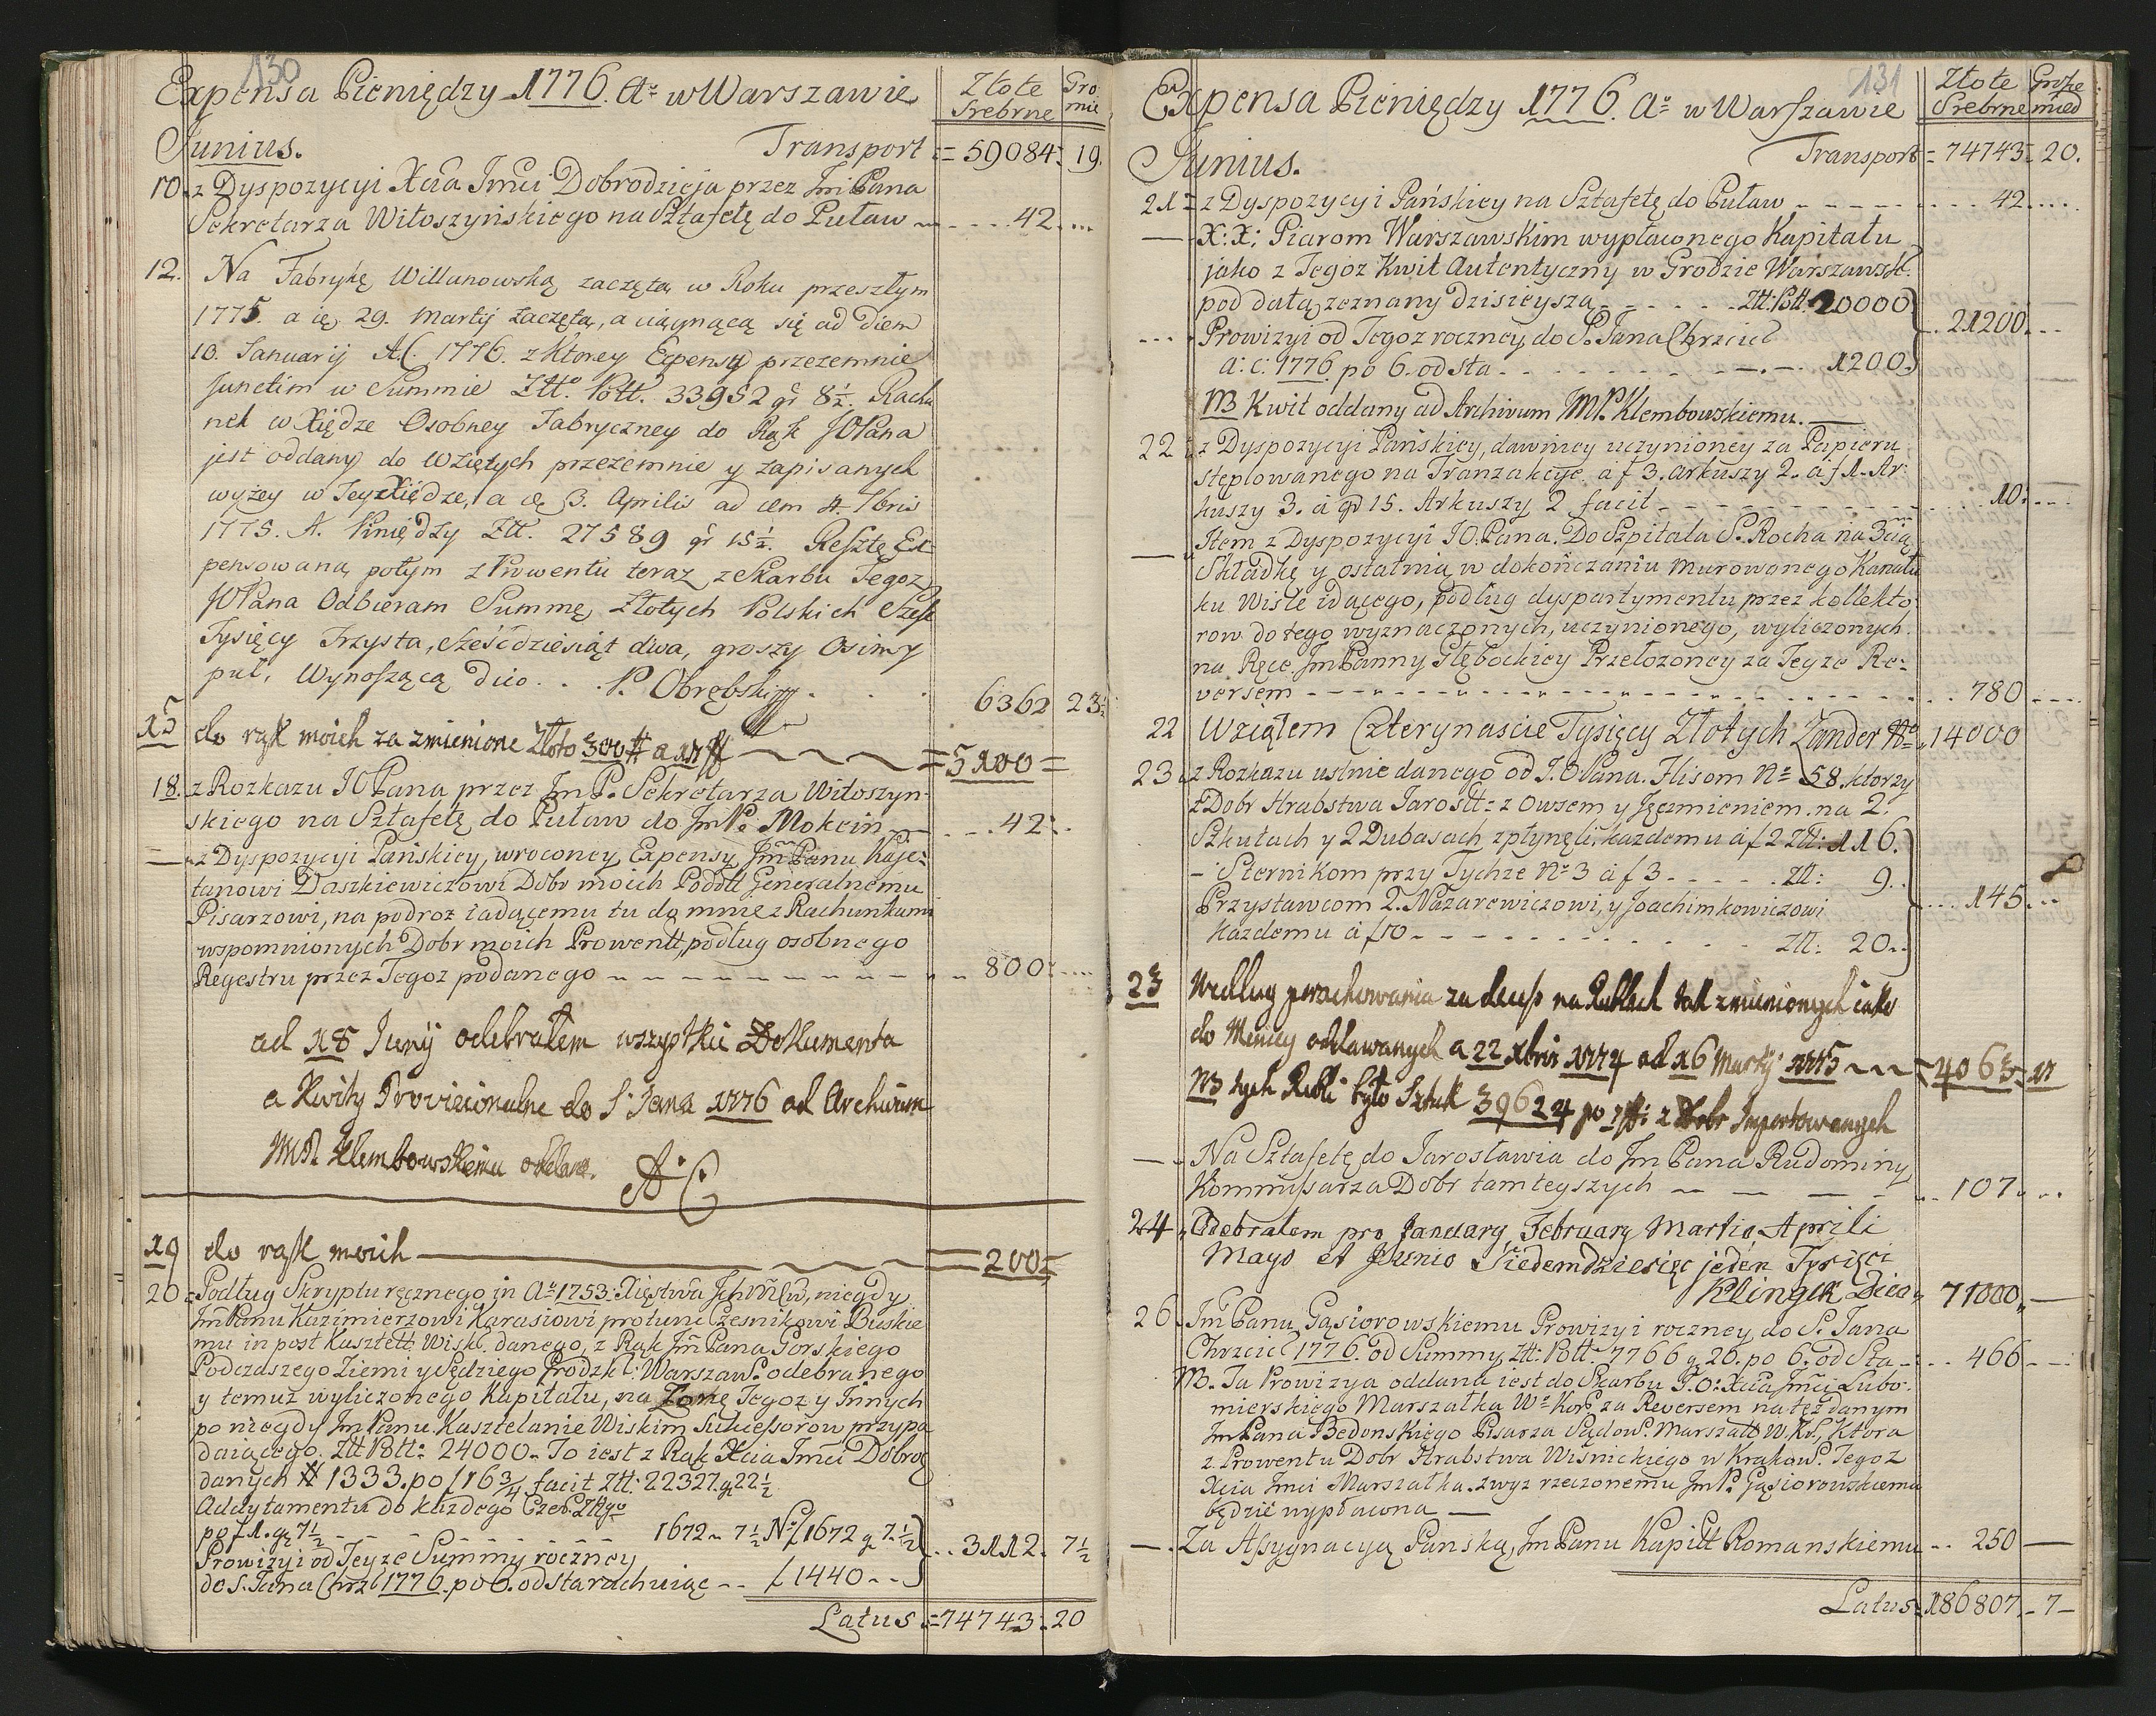 130
Expensa Pieniędzy 1776. Ao w Warszawie
Złote Srebrne
Gro. mie
Junius.
Transport = 59084. 19.
10. z Dyspozycyi Xcia Jmci Dobrodzieja przez Jmi Pana
Sekretarza Witoszyńskiego na Sztafetę do Puław 42
12. Na Fabrykę Willanowską zaczętą w Roku przeszłym
1775. a 29. Martij zaczętą, a ciągnącą się ad diem
10. Januarij A.C. 1776. z ktorey Expensy przezemnie
Junctim w Summie Ztt. Pott. 33952 gr 8½. Rachu
nek w Xiędze Osobney Fabryczney do Rąk JOPana
jest oddany do wziętych przezemnie y zapisanych
wyżey w Teyże Xiędze, a 3. Aprilis ad 4. 1bris
1775. A. Pniędzy Ztt. 27589 gr 15½. Resztę Ex-
pensowaną potym z Prowentu teraz, ze Skarbu Tegoż
JOPana Odbieram Summę, Złotych Polskich Sześć
Tysięcy Trzysta, sześćdziesiąt dwa, groszy Osim y
puł, Wynoszącą dico... P. Obrębski 6362 23½
15 do rąk moich za zmienione Złoto 300 # a 17 # = 5100 =
18. z Rozkazu JOPana przez Jm P. Sekretarza Witoszyn-
skiego na Sztafetę do Puław do Jm P. Mokcin 42
— z Dyspozycyi Pańskiey, wroconey Expensy Jm Panu Kaje-
tanowi Daszkiewiczowi Dobr moich Podoll Generalnemu
Pisarzowi, na podroz iadącemu tu do mnie z Rachunkami
wspomnionych Dobr moich Prowentt, podług osobnego
Regestru przez Tegoz podanego 800
ad 18 Junij odebrałem wszystkie Dokumenta
a Kwity Provisionalne do S. Jana 1776 ad Archivum
MP. Klembowskiemu oddane. A.C.
19 do rąk moich = 200 =
20 Podług Skryptu ręcznego in Ao 1753. Xięstwa, niegdy
Jm Panu Kazimierzowi Karasiowi protunc Czesnikowi Buskie
mu in post Kasztell. Wisk. danego, z Rąk Jm Pana Gorskiego
Podczaszego Ziemi y Sędziego Grodzk. Warszaws. odebranego
y temuż wyliczonego Kapitału, na Żonę Tegoz y Innych
po niegdy Jm Panu Kasztelanie Wiskim Sukcessorow przypa
daiącego. Ztt Pott: 24000. To iest z Rąk Xcia Jmci Dobrod
danych # 1333. po f 16¾ facit Ztt: 22327. g 22½
Addytamentu do każdego Czer. Złtgo
po f 1. gr 7½ 1672 7½ No f 1672 g 7½
Prowizyi od Teyze Summy roczney
do S. Jana Chrzc 1776 po 6. od sta rachuiąc f 1440 3112. 7½
Latus = 74743. 20
131
Expensa Pieniędzy 1776. Ao w Warszawie
Złote Srebrne
Grosze mied
Junius.
Transport = 74743 = 20.
21 z Dyspozycyi Pańskiey na Sztafetę do Puław 42
— X: X: Piarom Warszawskim wypłaconego Kapitału
jako z Tegoż Kwit Autentyczny w Grodzie Warszawsk.
pod datą zeznany dzisieyszą Ztt: Pott. 20000
Prowizyi od Tegoz roczney do S. Jana Chrzciel
a: c: 1776 po 6. od sta 1200. 21200
NB Kwit oddany ad Archivum JMP. Klembowskiemu.
22 z Dyspozycyi Pańskiey, dawniey uczynioney za Papieru
steplowanego na Tranzakcye. à f 3. arkuszy 2. à f 1. Ar:
kuszy 3. à gr 15. Arkuszy 2 facit 10
— Item z Dyspozycyi JO. Pana. Do Szpitala S. Rocha na 3cią
Składkę y ostatnią w dokończaniu murowanego Kanału
ku Wiśle idącego, podług dyspartymentu przez kollekto
row do tego wyznaczonych, uczynionego, wyliczonych
na Ręce Jm Panny Głębockiey Przełozoney za Teyze Re-
versem 780
22 Wziąłem Czterynascie Tysięcy Złotych Zander 14000
23 z Rozkazu ustnie danego od J.O Pana. Flisom No 58. ktorzy
z Dobr Hrabstwa Jarosłt: z Owsem y Jęczmieniem na 2.
Szkutach y 2 Dubasach zpłynęli, kazdemu à f 2 Ztt: 116.
- Sternikom przy Tychze No 3 à f 3 Ztt: 9.
Przystawcom 2. Nazarewiczowi, y Joachimkowiczowi
kazdemu à f 10 Ztt: 20. 145
23 Według porachowania za decess na Rublach tak zmienionych iako
do Menicy oddawanych a 22 xbris 1774 ad 16 Martij 1775 = 4063 = 17
NB tych Rubli było Sztuk 39624 po 7 z Dobr Importowanych
— Na Sztafetę do Jarosławia do Jm Pana Rudominy
Kommissarza Dobr tamteyszych 107
24 Odebrałem pro January, February Martio Aprili
Mayo et Junio Siedemdziesięc jeden Tysięci
Klinger Dico 71000
26. Jm Panu Gąsiorowskiemu Prowizyi roczney do S. Jana
Chrzciel 1776. od Summy Ztt: Pott. 7766 g 20. po 6. od Sta 466
NB. Ta Prowizya oddana iest do Skarbu J.O. Xcia Jmci Lubo-
mierskiego Marszałka Wo Kor. za Reversem na też danym
Jm Pana Bedonskiego Pisarza Sądow. Marszałł W. K., Ktora
z Prowentu Dobr Hrabstwa Wisnickiego w Krakow. Tegoz
Xcia Jmci Marszałka. zwyz rzeczonemu Jm P. Gąsiorowskiemu
będzie wypłacona
— Za Assygnacyą Pańską, Jm Panu Kapitt Romanskiemu 250
Latus 186807. 7